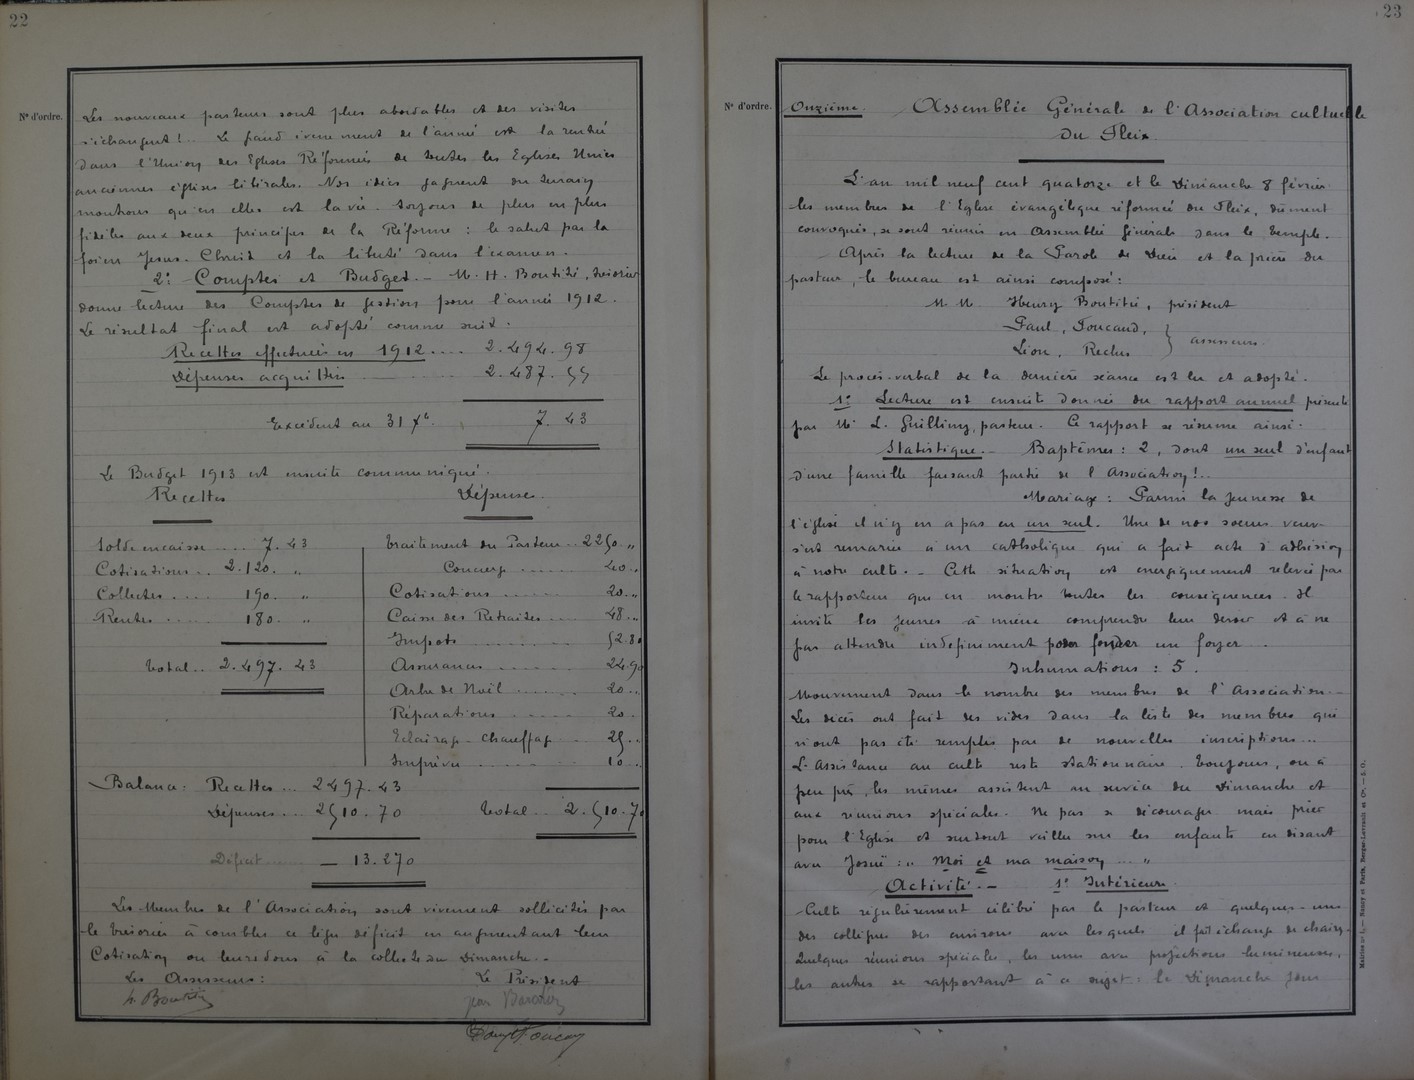 22
N° d'ordre.
Les nouveaux pasteurs sont plus abordables et des visites
s'échangent ! Le grand évènement de l'année est la rentrée
dans l'Union des Eglises Réformées de toutes les Eglises Unies
anciennes églises libérales. Nos idées gagnent du terrain
montrons qu'en elles est la vie. Soyons de plus en plus
fidèles aux deux principes de la Réforme : le salut par la
foi en Jésus-Christ et la liberté dans l'examen.
2° Comptes et Budget. - M. H. Boutitié, trésorier
donne lecture des Comptes de gestion pour l'année 1912.
Le résultat final est adopté comme suit.
Recettes effectuées en 1912 .... 2.494.98
Dépenses acquittées ........ 2.487.55
Excédent au 31 Xbre 7.43
Le Budget 1913 est ensuite communiqué.
Recettes Dépenses.
Solde en caisse .... 7.43
Cotisations .. 2.120. "
Collectes .... 190. "
Rentes ..... 180. "
Total .. 2.497.43
Traitement du Pasteur .. 2250. "
Concierge ...... 40. "
Cotisations ........ 20. "
Caisse des Retraites .... 48. "
Impots ........ 52.80
Assurances ....... 24.90
Arbre de Noël ...... 20. "
Réparations ...... 20.
Eclairage - Chauffage .... 25. "
Imprévu ........ 10. "
Total ... 2.510.70
Balance : Recettes ... 2497.43
Dépenses ... 2510.70
Déficit ...... - 13.270
Les Membres de l'Association sont vivement sollicités par
le trésorier à combler ce léger déficit en augmentant leur
Cotisation ou leurs dons à la collecte du Dimanche. -
Les Assesseurs : Le Président
h. Boutitié
23
N° d'ordre.
Onzième. Assemblée Générale de l'Association cultuelle
du Fleix
L'an mil neuf cent quatorze et le Dimanche 8 février
les membres de l'Eglise évangélique réformée du Fleix, dûment
convoqués, se sont réunis en Assemblée Générale dans le Temple.
Après la lecture de la Parole de Dieu et la prière du
pasteur, le bureau est ainsi composé :
M.M. Henry Boutitié, président
Paul Foucaud,
Léon Reclus } assesseurs.
Le procès-verbal de la dernière séance est lu et adopté.
1° Lecture est ensuite donnée du rapport annuel présenté
par Mr L. Guilliny, pasteur. Ce rapport se résume ainsi.
Statistique. - Baptêmes : 2, dont un seul d'enfant
d'une famille faisant partie de l'Association !..
Mariage : Parmi la jeunesse de
l'église il n'y en a pas eu un seul. Une de nos soeurs veuve
s'est remariée à un catholique qui a fait acte d'adhésion
à notre culte. - Cette situation est énergiquement relevée par
le rapporteur qui en montre toutes les conséquences. Il
invite les jeunes à mieux comprendre leur devoir et à ne
pas attendre indéfiniment pour fonder un foyer.
Inhumations : 5.
Mouvement dans le nombre des membres de l'Association. -
Les décès ont fait des vides dans la liste des membres qui
n'ont pas été remplis par de nouvelles inscriptions...
L'Assistance au culte reste stationnaire. Toujours, ou à
peu près, les mêmes assistent au service du Dimanche et
aux réunions spéciales. Ne pas se décourager mais prier
pour l'Eglise et surtout veiller sur les enfants en disant
avec Josué : " Moi et ma maison ... "
Activité. - 1° Intérieure.
Culte régulièrement célébré par le pasteur et quelques-uns
des collègues des environs avec lesquels il fait échange de chaire.
Quelques réunions spéciales, les unes avec projections lumineuses,
les autres se rapportant à ce sujet : le Dimanche jour